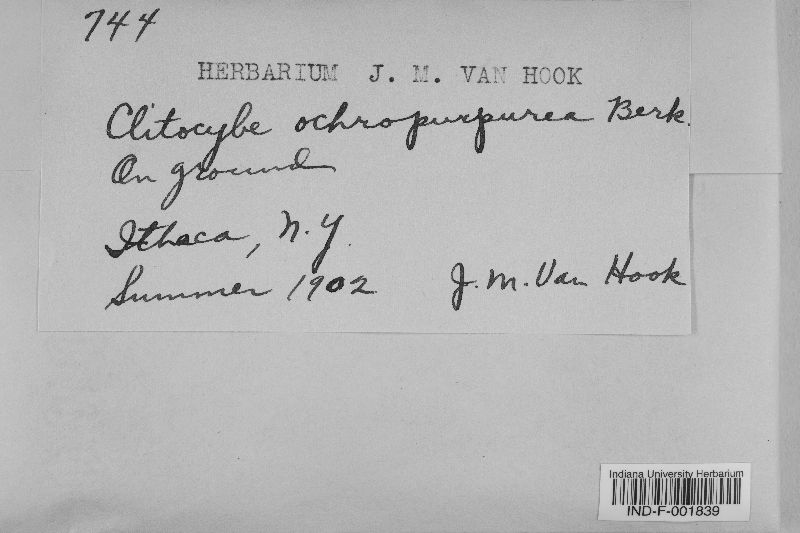 744
HERBARIUM J. M. VAN HOOK
Clitocybe ochropurpurea Berk.
On ground
Ithaca, N.Y.
Summer 1902 J. M. Van Hook
Indiana University Herbarium
IND-F-001839